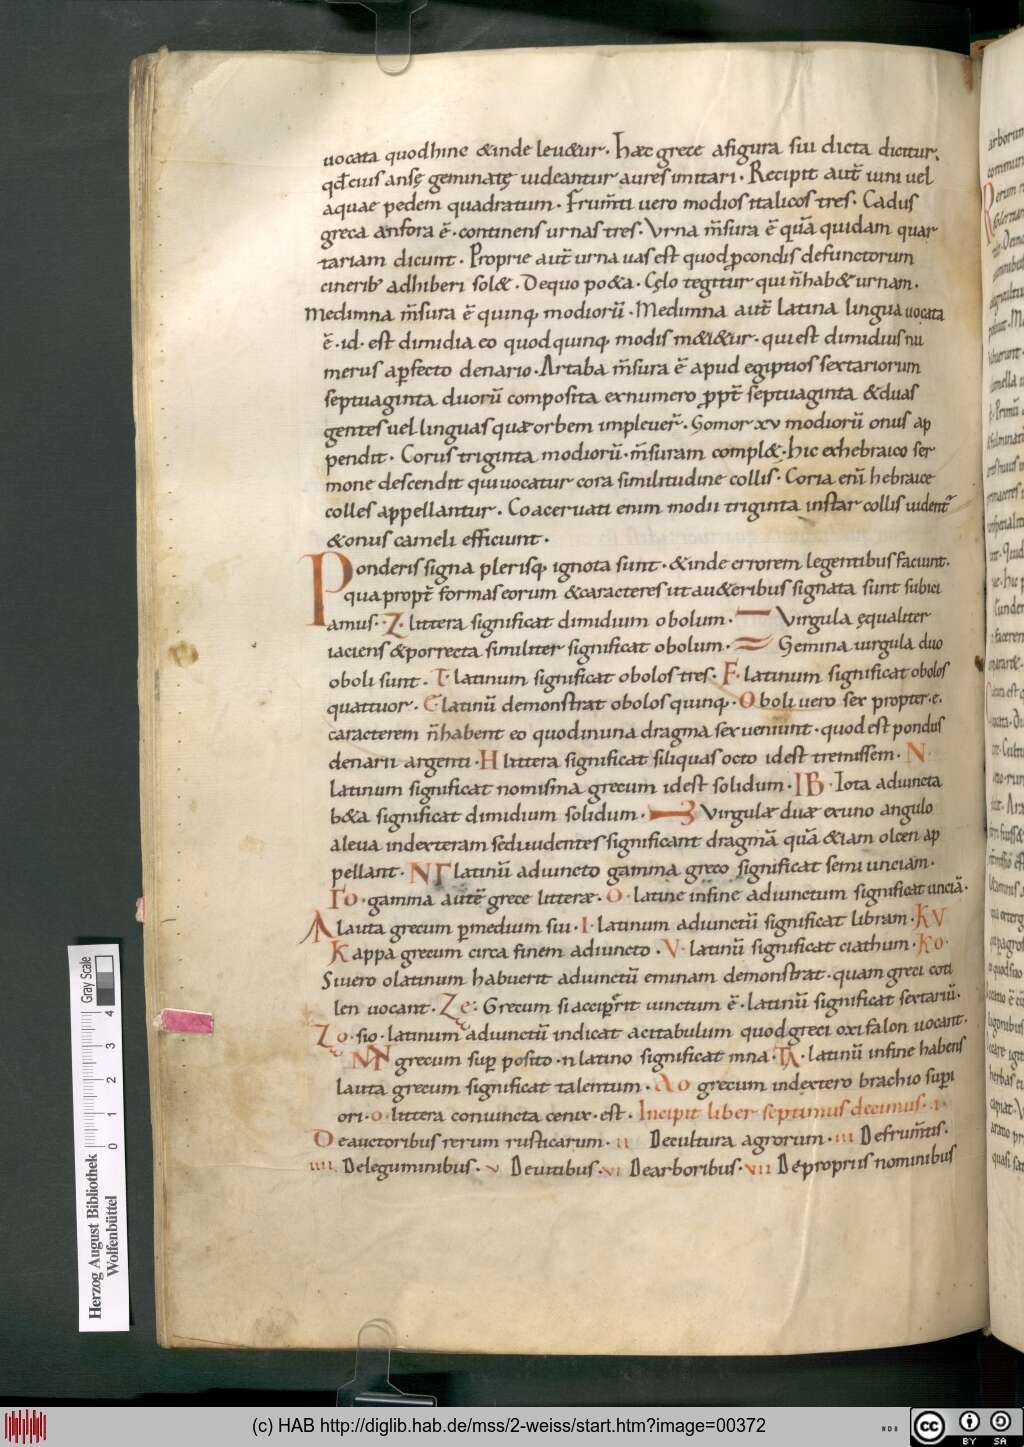 uocata quodhinc &inde leu&ur. Haec grece afigura sui dicta dicitur.
qđeius ansę geminatę uideantur aures imitari. Recipit aut̄ uini uel
aquae pedem quadratum. Frum̄ti uero modios italicos tres. Cadus
greca anfora ē. continens urnas tres. Vrna m̄sura ē quā quidam quar
tariam dicunt. Proprie aut̄ urna uas est quod ꝑcondis defunctorum
cinerib; adhiberi sol&. Dequo po&a. Cęlo tegitur qui n̄hab& urnam.
Medimna m̄sura ē quinq; modiorū. Medimna aut̄ latina lingua uocata
ē. id. est dimidia eo quod quinq; modis m&i&ur. qui est dimidius nu
merus aꝑfecto denario. Artaba m̄sura ē apud egiptios sextariorum
septuaginta duorū composita exnumero ꝓpt̄ septuaginta &duas
gentes uel linguas quae orbem impleuer̄. Gomor xv modiorū onus ap
pendit. Corus triginta modiorū. m̄suram compl&. hic exhebraico ser
mone descendit qui uocatur cora similitudine collis. Coria enī hebraice
colles appellantur. Coaceruati enim modii triginta instar collis uident̄
&onus cameli efficiunt.
Ponderis signa plerisq; ignota sunt. &inde errorem legentibus faciunt.
qua propt̄ formas eorum &caracteres ut au&eribus signata sunt subici
amus. Z littera significat dimidium obolum. — Virgula ęqualiter
iaciens &porrecta similiter significat obolum. = Gemina uirgula duo
oboli sunt. T. latinum significat obolos tres. F. latinum significat obolos
quattuor. E latinū demonstrat obolos quinq;. Oboli uero sex propter. e.
caracterem n̄habent eo quodinuna dragma sex ueniunt. quod est pondus
denarii argenti. H littera significat siliquas octo idest tremissem. N
latinum significat nomisma grecum idest solidum. IB. Iota adiuncta
b&a significat dimidium solidum. Virgulae duae exuno angulo
aleua indexteram seduidentes significant dragmā quā &iam olcen ap
pellant. NΓ latinū adiuncto gamma greco significat semiunciam.
Γo. gamma autē grece litterae. O. latine infine adiunctum significat unciā.
Λ lauta grecum ꝑmedium sui. I. latinum adiunctū significat libram. KV
Kappa grecum circa finem adiuncto. V. latinū significat ciathum. Ko.
Siuero olatinum habuerit adiunctū eminam demonstrat. quam greci coti
len uocant. Ze: Grecum si acciꝑrit iunctum ē. latinū significat sextariū.
Zo. sio. latinum adiunctū indicat acitabulum quod greci oxifalon uocant.
NN grecum suꝑ posito. n latino significat mna. TΛ. latinū infine habens
lauta grecum significat talentum. Λo grecum indextero brachio suꝑi
ori. o. littera coniuncta cenix. est. Incipit liber septimus decimus. I.
Deauctoribus rerum rusticarum. II Decultura agrorum. III Defrum̄tis.
IIII. Deleguminibus. V Deuitibus. VI Dearboribus. VII Depropriis nominibus
Herzog August Bibliothek
Wolfenbüttel
Gray Scale
0 1 2 3 4
(c) HAB http://diglib.hab.de/mss/2-weiss/start.htm?image=00372
WDB
cc BY SA